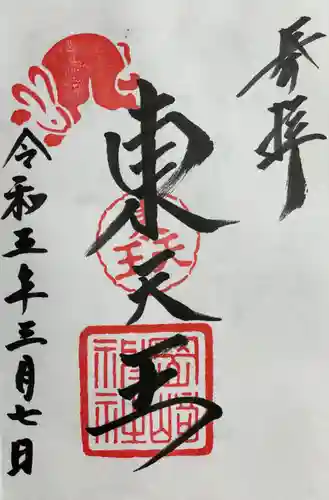 奉拝
東天王
岡崎
神社
令和五年三月七日